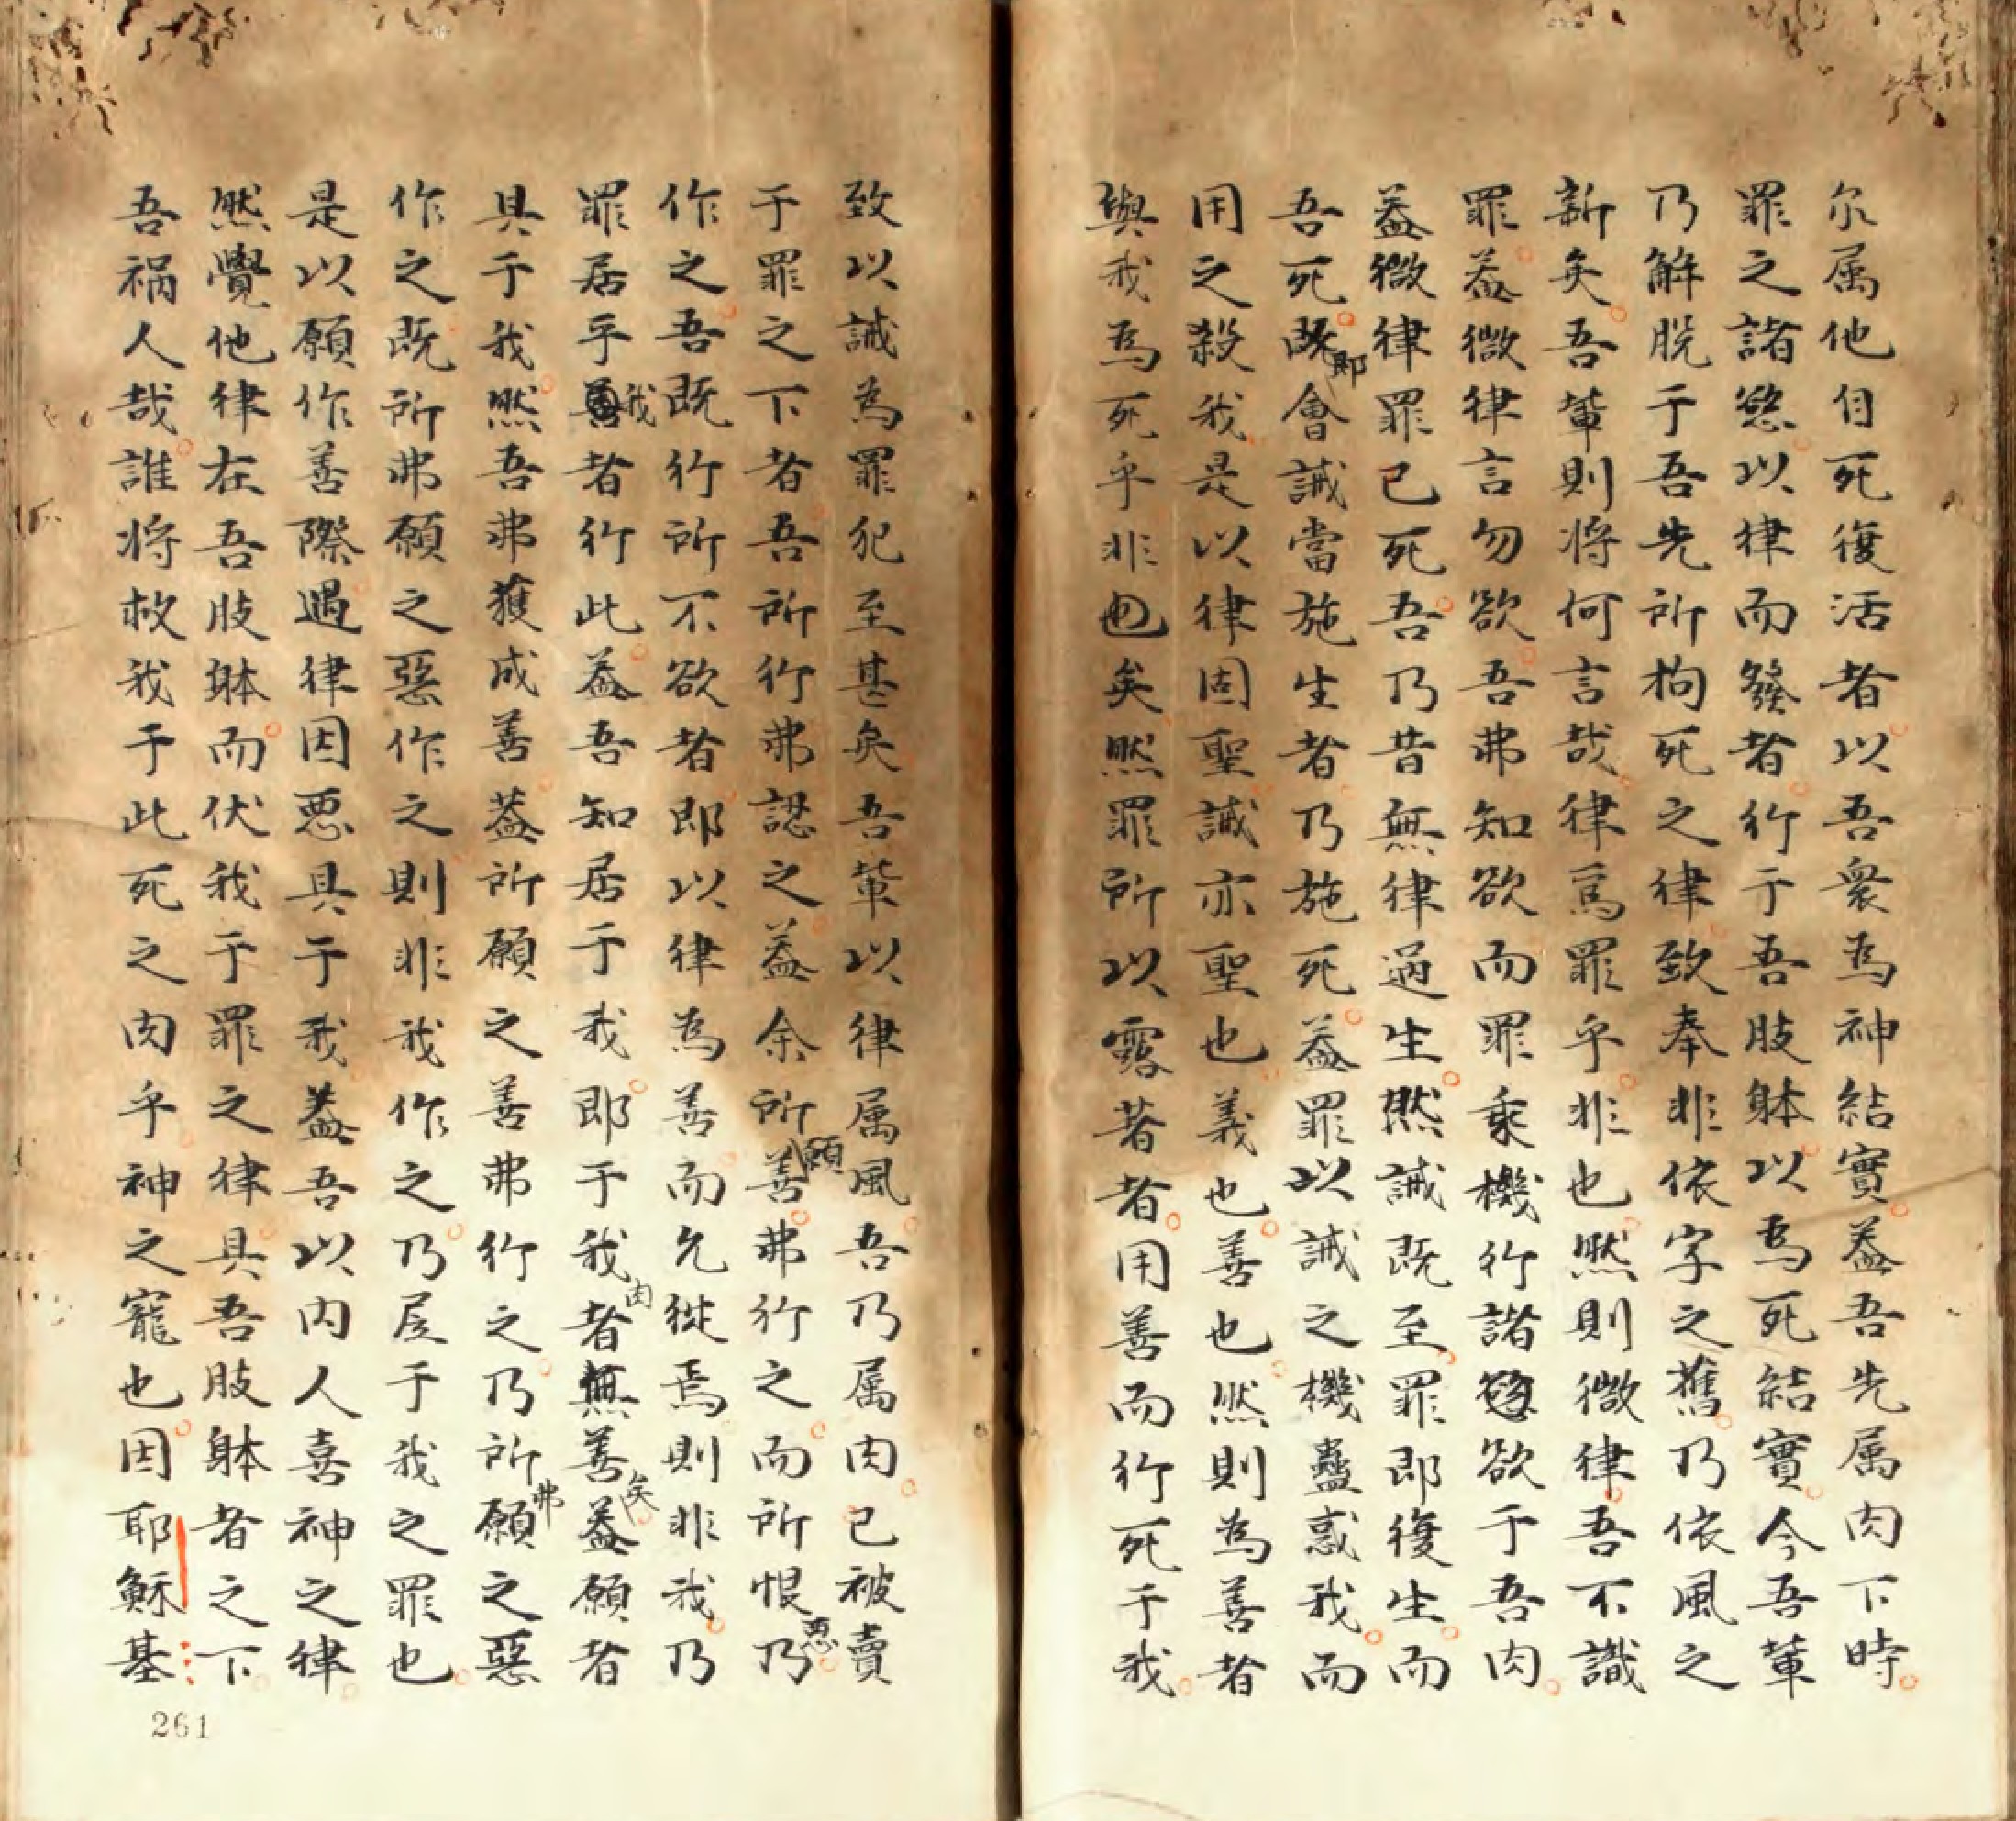 尔属他自死復活者以吾衆為神結實盖吾先属肉下時
罪之諸慾以律而發者行于吾肢躰以為死結實今吾軰
乃解脱于吾先所拘死之律致奉非依字之舊乃依風之
新矣吾軰則将何言哉律為罪乎非也然則微律吾不識
罪盖微律言勿欲吾弗知欲而罪乘機行諸慾欲于吾肉
盖微律罪已死吾乃昔無律過生然誡既至罪即復生而
吾死即會誡當施生者乃施死盖罪以誡之機蠱惑我而
用之殺我是以律固聖誡亦聖也義也善也然則為善者
與我為死乎非也矣然罪所以露著者用善而行死于我
致以誡為罪犯至甚矣吾軰以律属風吾乃属肉已被賣
于罪之下者吾所行弗認之盖余所願善弗行之而所恨惡乃
作之吾既行所不欲者即以律為善而允從焉則非我乃
罪居乎我者行此盖吾知居于我即于我肉者無善矣盖願者
具于我然吾弗獲成善盖所願之善弗行之乃所弗願之惡
作之既所弗願之惡作之則非我作之乃居于我之罪也
是以願作善際遇律因惡具于我盖吾以内人喜神之律
然覺他律在吾肢躰而伏我于罪之律具吾肢躰者之下
吾禍人哉誰将救我于此死之肉乎神之寵也因耶穌基
261